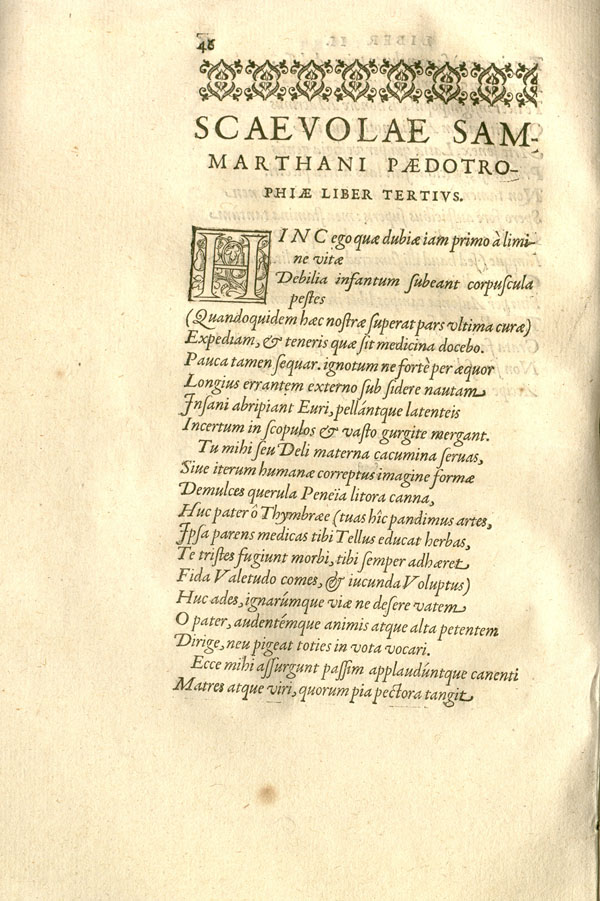 46
SCAEVOLAE SAM-
MARTHANI PÆDOTRO-
PHIÆ LIBER TERTIVS.
HINC ego quæ dubiæ iam primo à limi-
ne vitæ
Debilia infantum subeant corpuscula
pestes
(Quandoquidem hæc nostræ superat pars vltima curæ)
Expediam, & teneris quæ sit medicina docebo.
Pauca tamen sequar. ignotum ne fortè per æquor
Longius errantem externo sub sidere nautam
Insani abripiant Euri, pellántque latenteis
Incertum in scopulos & vasto gurgite mergant.
Tu mihi seu Deli materna cacumina seruas,
Siue iterum humanæ correptus imagine formæ
Demulces querula Peneïa litora canna,
Huc pater ô Thymbræe (tuas hîc pandimus artes,
Ipsa parens medicas tibi Tellus educat herbas,
Te tristes fugiunt morbi, tibi semper adhæret
Fida Valetudo comes, & iucunda Voluptus)
Huc ades, ignarúmque viæ ne desere vatem
O pater, audentémque animis atque alta petentem
Dirige, neu pigeat toties in vota vocari.
Ecce mihi assurgunt passim applaudúntque canenti
Matres atque viri, quorum pia pectora tangit